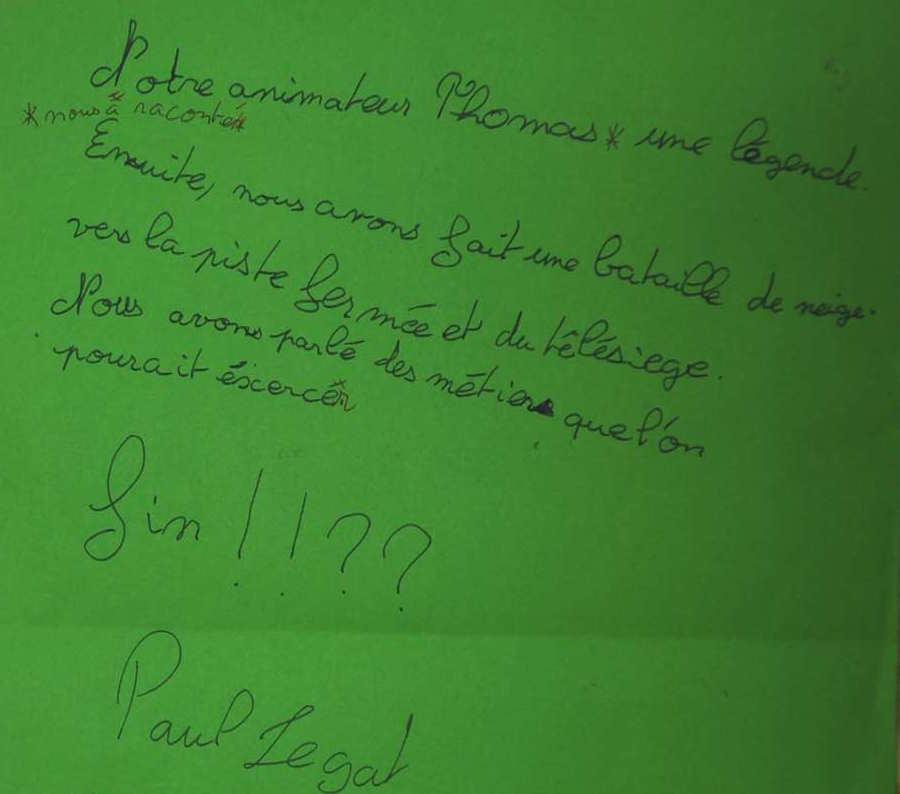 Notre animateur Thomas* une légende.
*nous à raconté*
Ensuite, nous avons fait une bataille de neige.
vers la piste fermée et du télésiege.
Nous avons parlé des métiers que l'on
pourait éxercér
fin !!??
Paul Legat